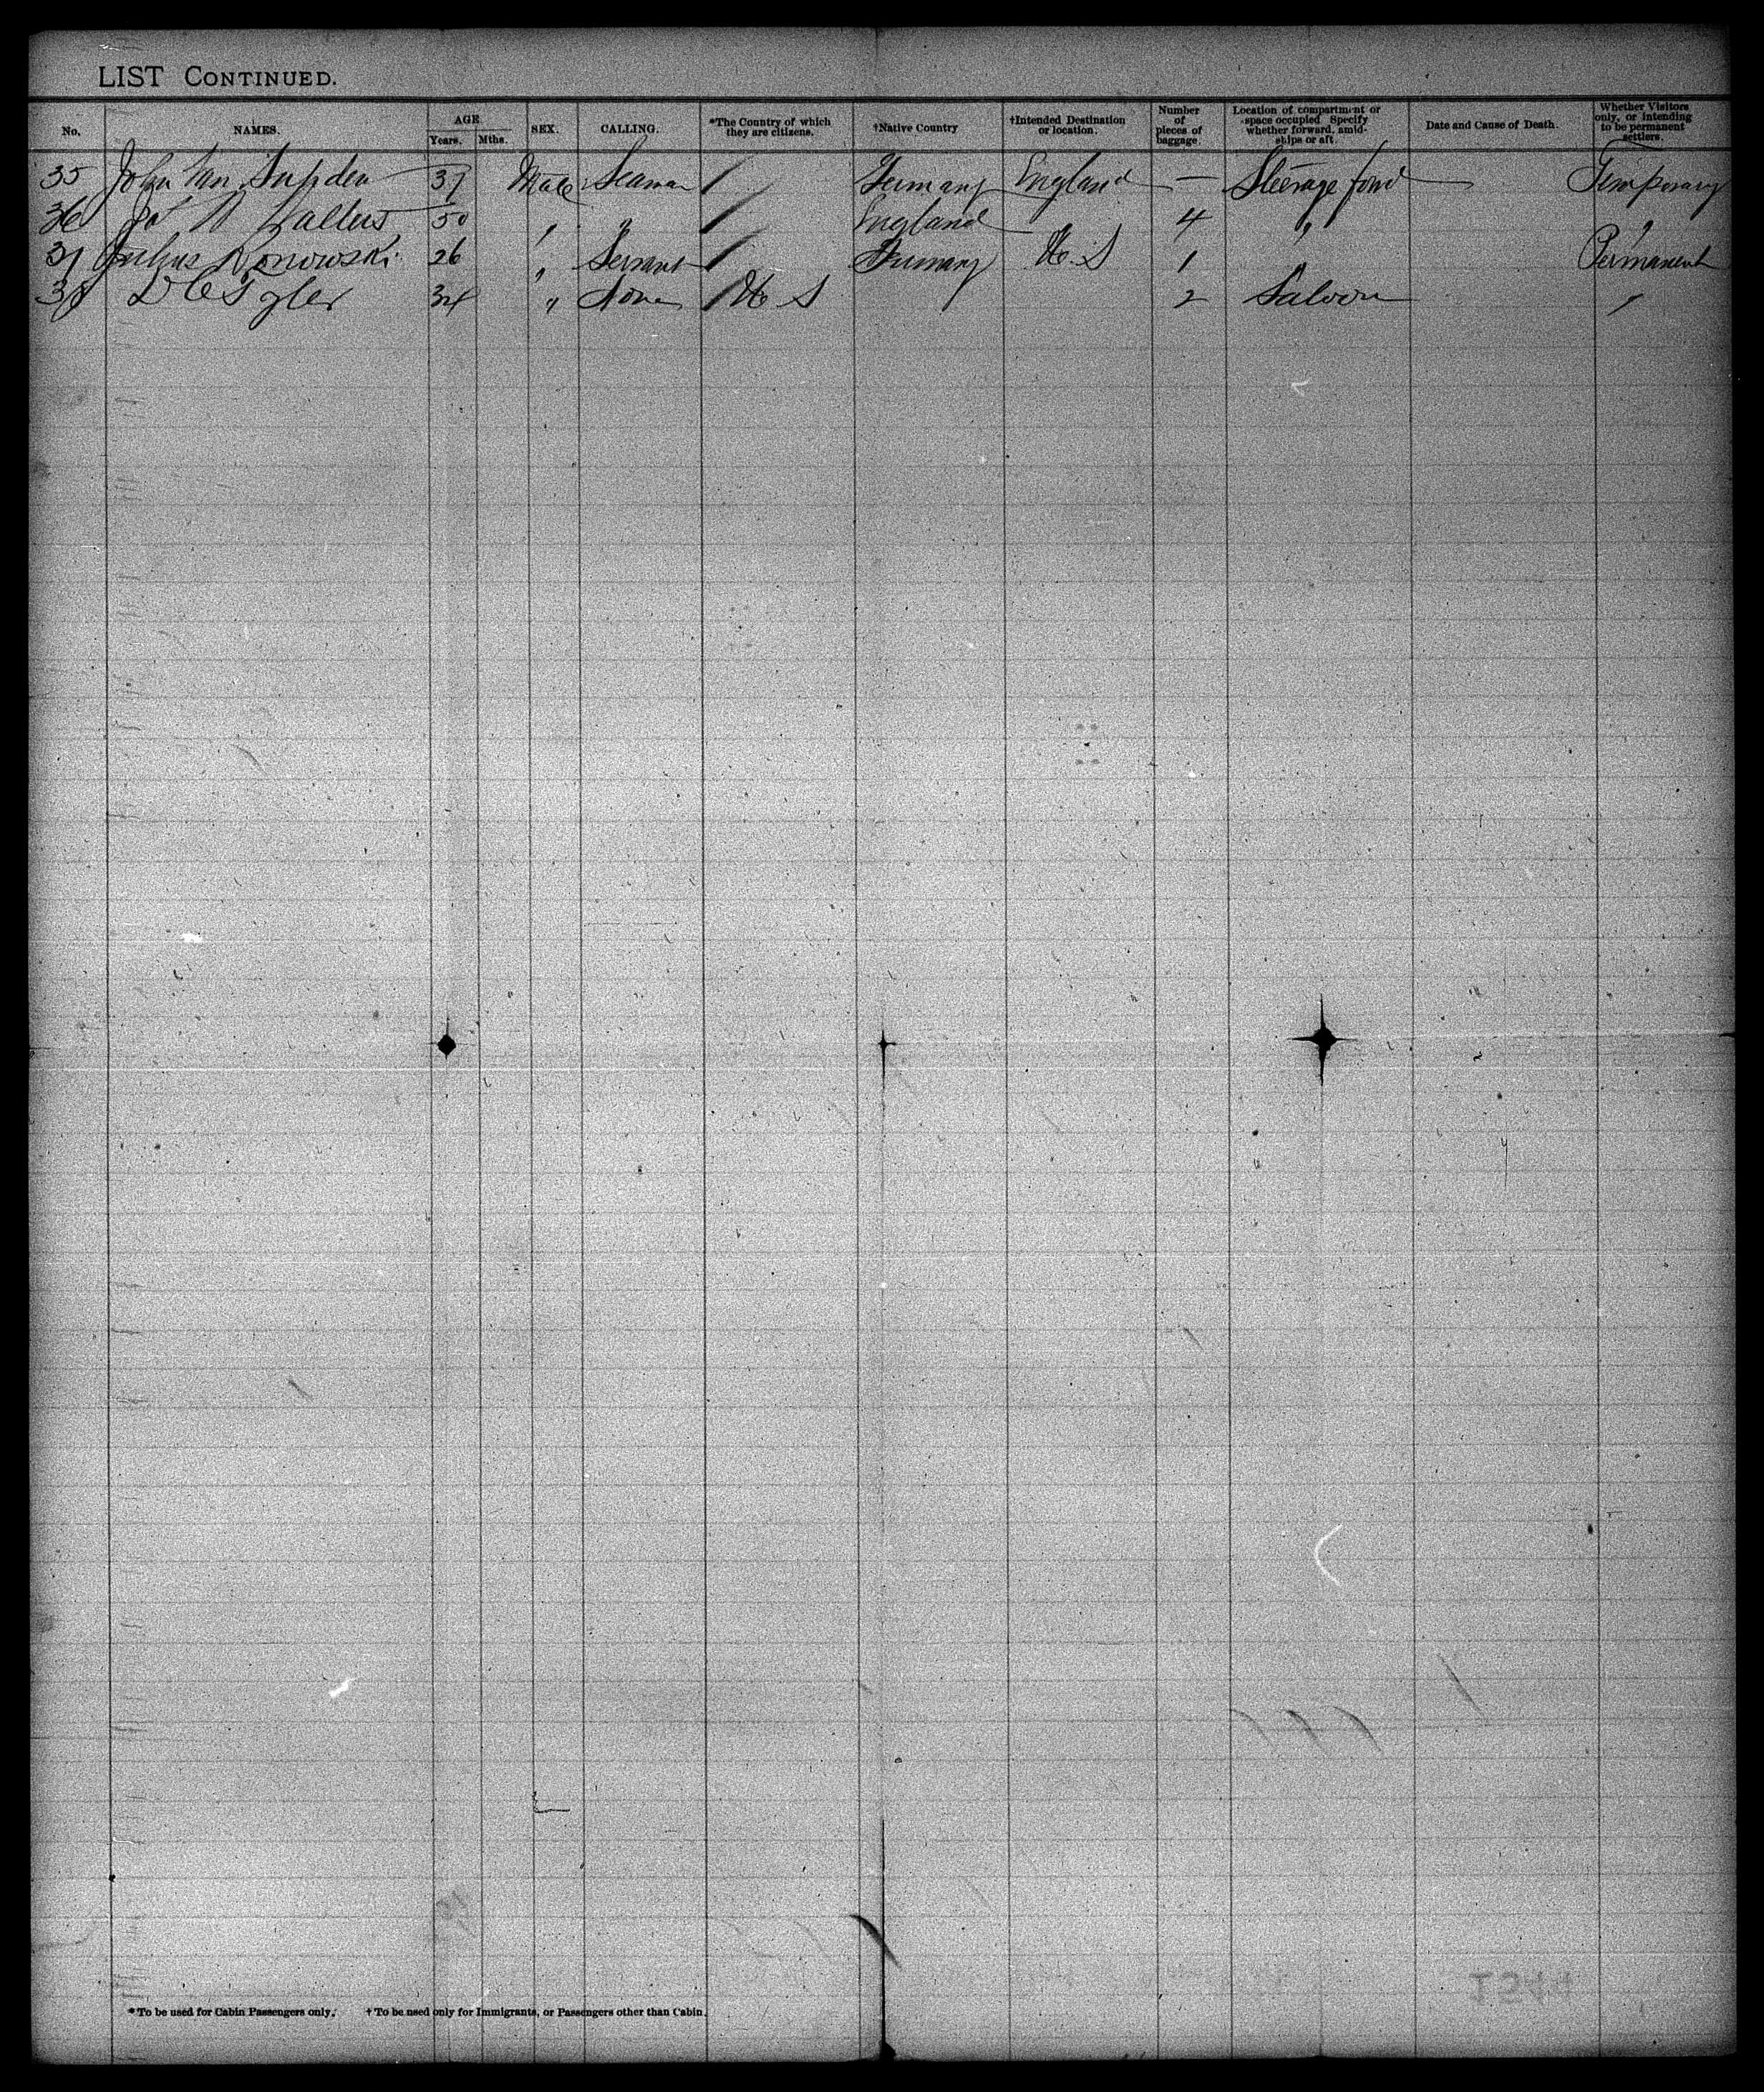 LIST CONTINUED.
No. NAMES. AGE Years. Mths. SEX. CALLING. *The Country of which they are citizens. †Native Country †Intended Destination or location. Number of pieces of baggage. Location of compartment or space occupied Specify whether forward, amidships or aft. Date and Cause of Death. Whether Visitors only, or intending to be permanent settlers.
35 John Van 37 Male Seaman Germany England — Steerage forwd Temporary
36 50 " " England 4 " "
37 Julius 26 " Servant Germany U. S 1 Permanent
38 34 " None U S 2 Saloon "
*To be used for Cabin Passengers only. †To be used only for Immigrants, or Passengers other than Cabin.